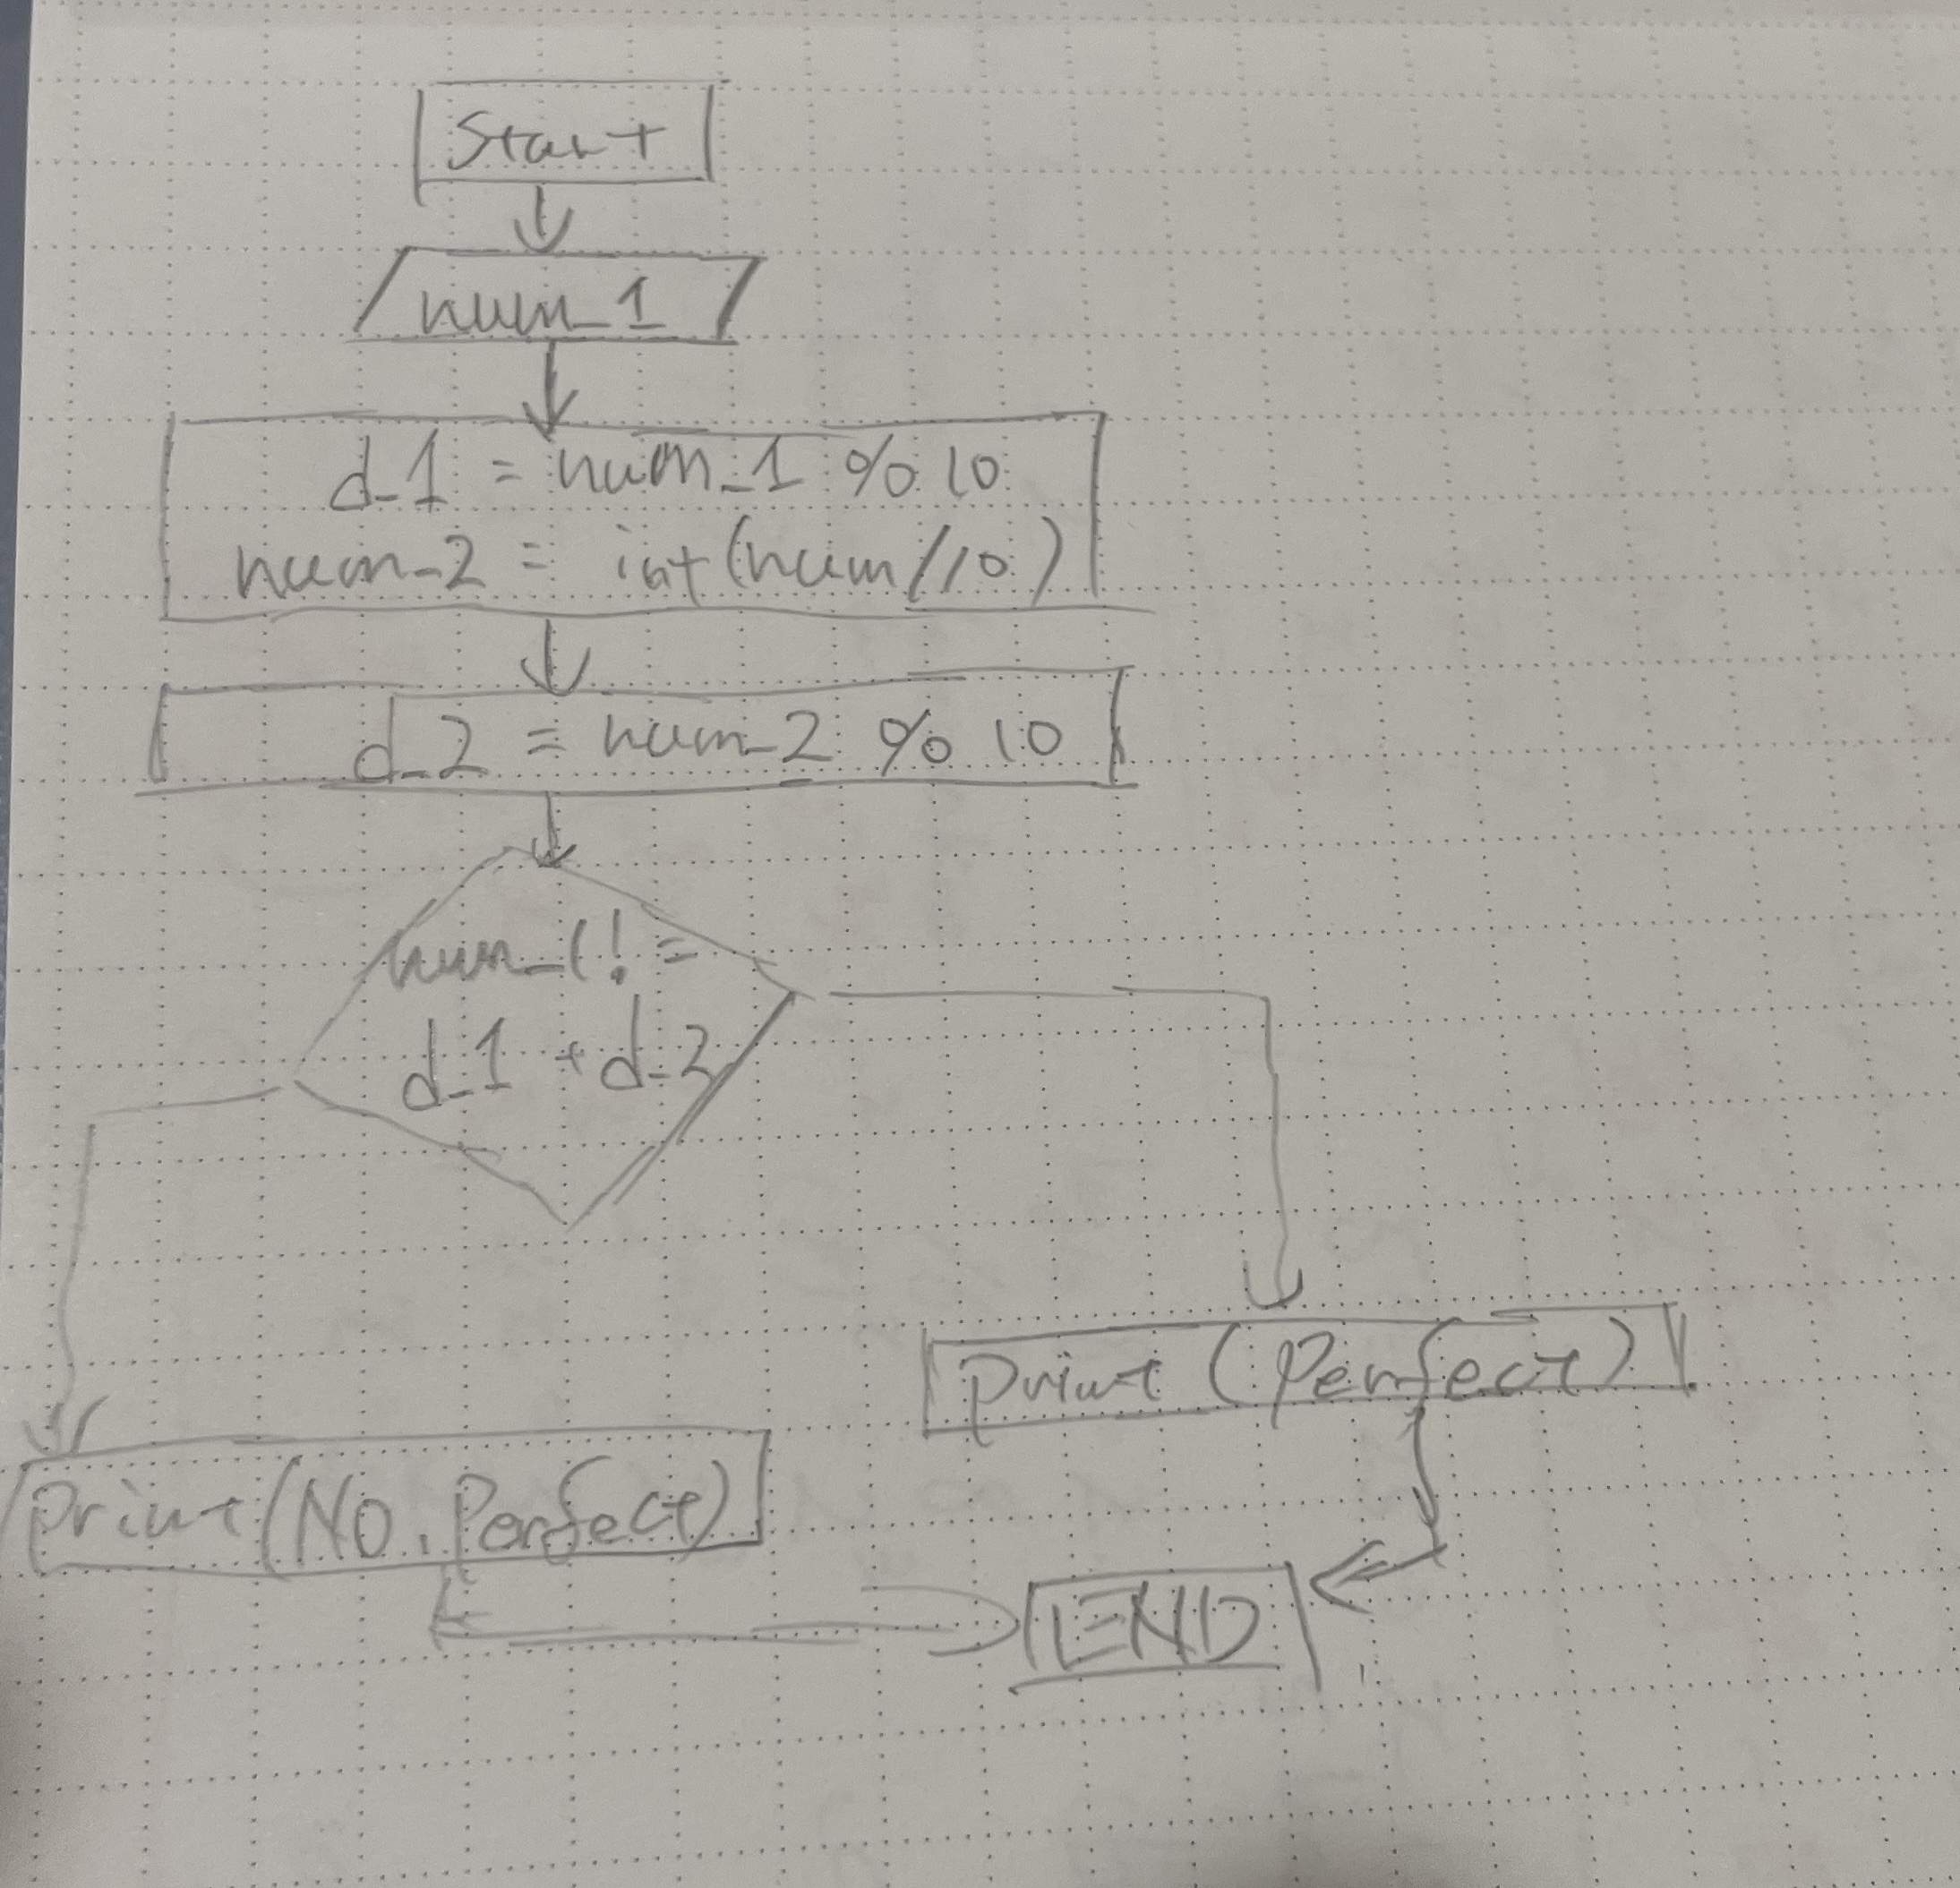 Start
num_1
d_1 = num_1 % 10
num_2 = int(num/10)
d_2 = num_2 % 10
num_1! =
d_1 + d_2
print (Perfect)
print (No. Perfect)
END